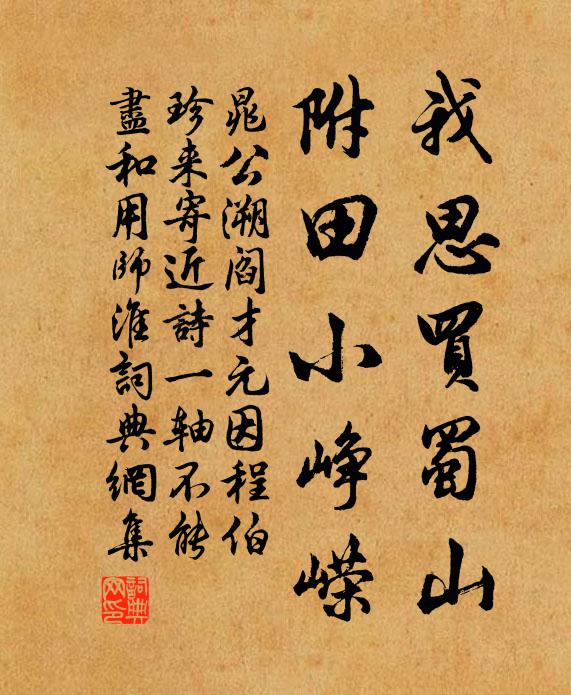 我思買蜀山
附田小峥嵘
晁公溯阎才元因程伯
珍来寄近詩一轴不能
盡和用師淮詞典網集
詞典
网印